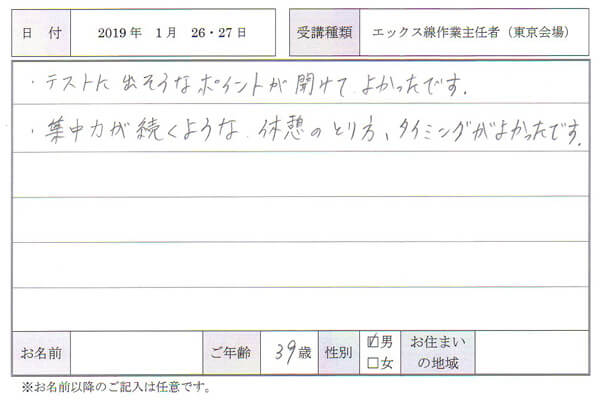 日 付 2019年 1月 26・27日 受講種類 エックス線作業主任者（東京会場）
・テストに出そうなポイントが聞けてよかったです。
・集中力が続くような、休憩のとり方、タイミングがよかったです。
お名前 ご年齢 39歳 性別 ☑男 □女 お住まいの地域
※お名前以降のご記入は任意です。